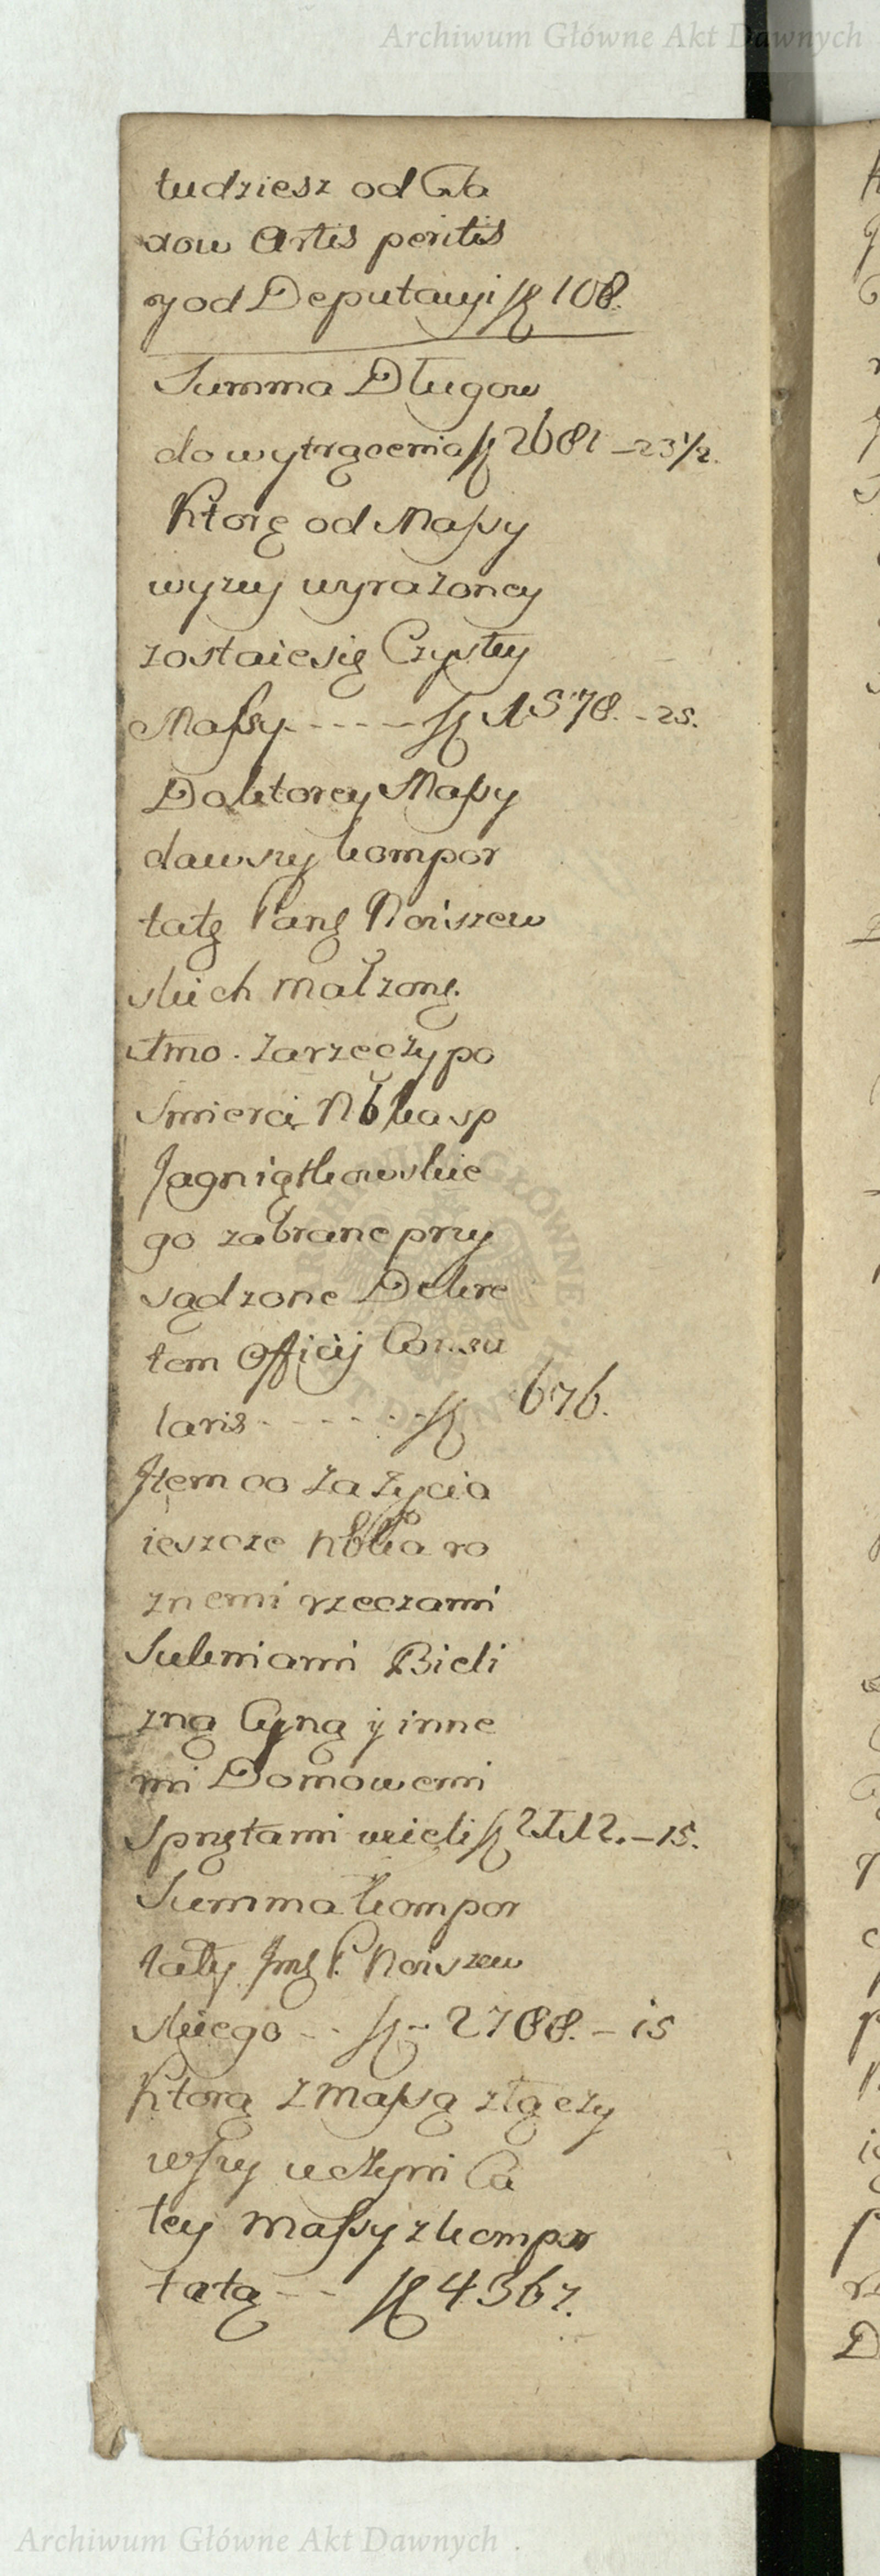 Archiwum Główne Akt Dawnych
tudziesz od Ga
dow Artis peritis
y od Deputacyi fl 108.
Summa Długow
do wytrącenia fl 2681 - 23 1/2.
Którę od Massy
wyzey wyrazoney
zostaie się Czystey
Massy - - - - - fl 1578. - 25.
Do ktorey Massy
dawszy kompor
tatę Pang Noiszew
skich małzong.
Imo. Za rzeczy po
Smierci Nbka sp
Jagniątkowskie
go zabrane przy
sądzone Dekre
tem Officij Consu
laris - - - - - fl 676.
Item co za zycia
ieszcze Nbka ro
znemi rzeczami
Sukniami Bieli
zną Cyną y inne
mi Domowemi
Sprzętami wzieli fl 2112. - 15.
Summa kompor
taty Jmg P. Noiszew
skiego - - fl - 2788. - 15
Ktorą z Massą złączy
wszy uczyni Ca
łey Massy z kompor
tatą - - fl 4367.
Archiwum Główne Akt Dawnych